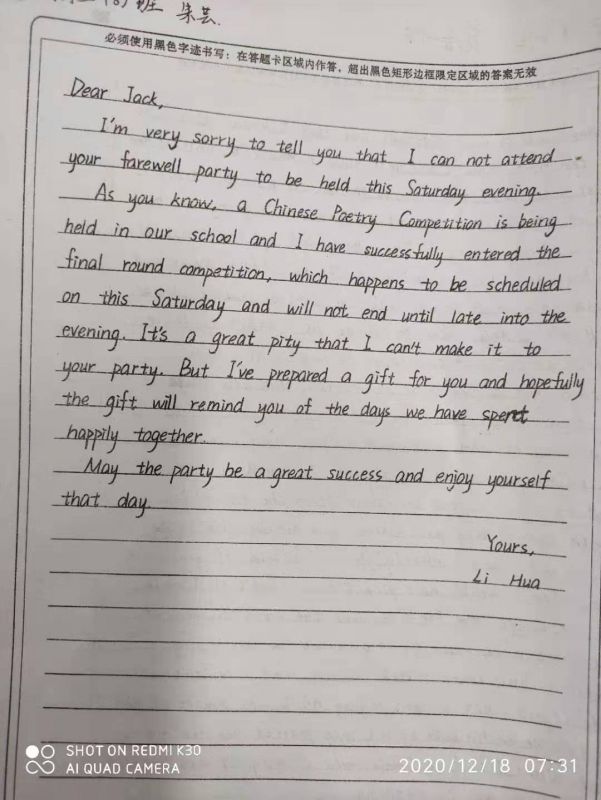 班 朱芸.
必须使用黑色字迹书写：在答题卡区域内作答，超出黑色矩形边框限定区域的答案无效
Dear Jack,
I'm very sorry to tell you that I can not attend
your farewell party to be held this Saturday evening.
As you know, a Chinese Poetry Competition is being
held in our school and I have successfully entered the
final round competition, which happens to be scheduled
on this Saturday and will not end until late into the
evening. It's a great pity that I can't make it to
your party. But I've prepared a gift for you and hopefully
the gift will remind you of the days we have spent
happily together.
May the party be a great success and enjoy yourself
that day.
Yours,
Li Hua
SHOT ON REDMI K30
AI QUAD CAMERA
2020/12/18 07:31